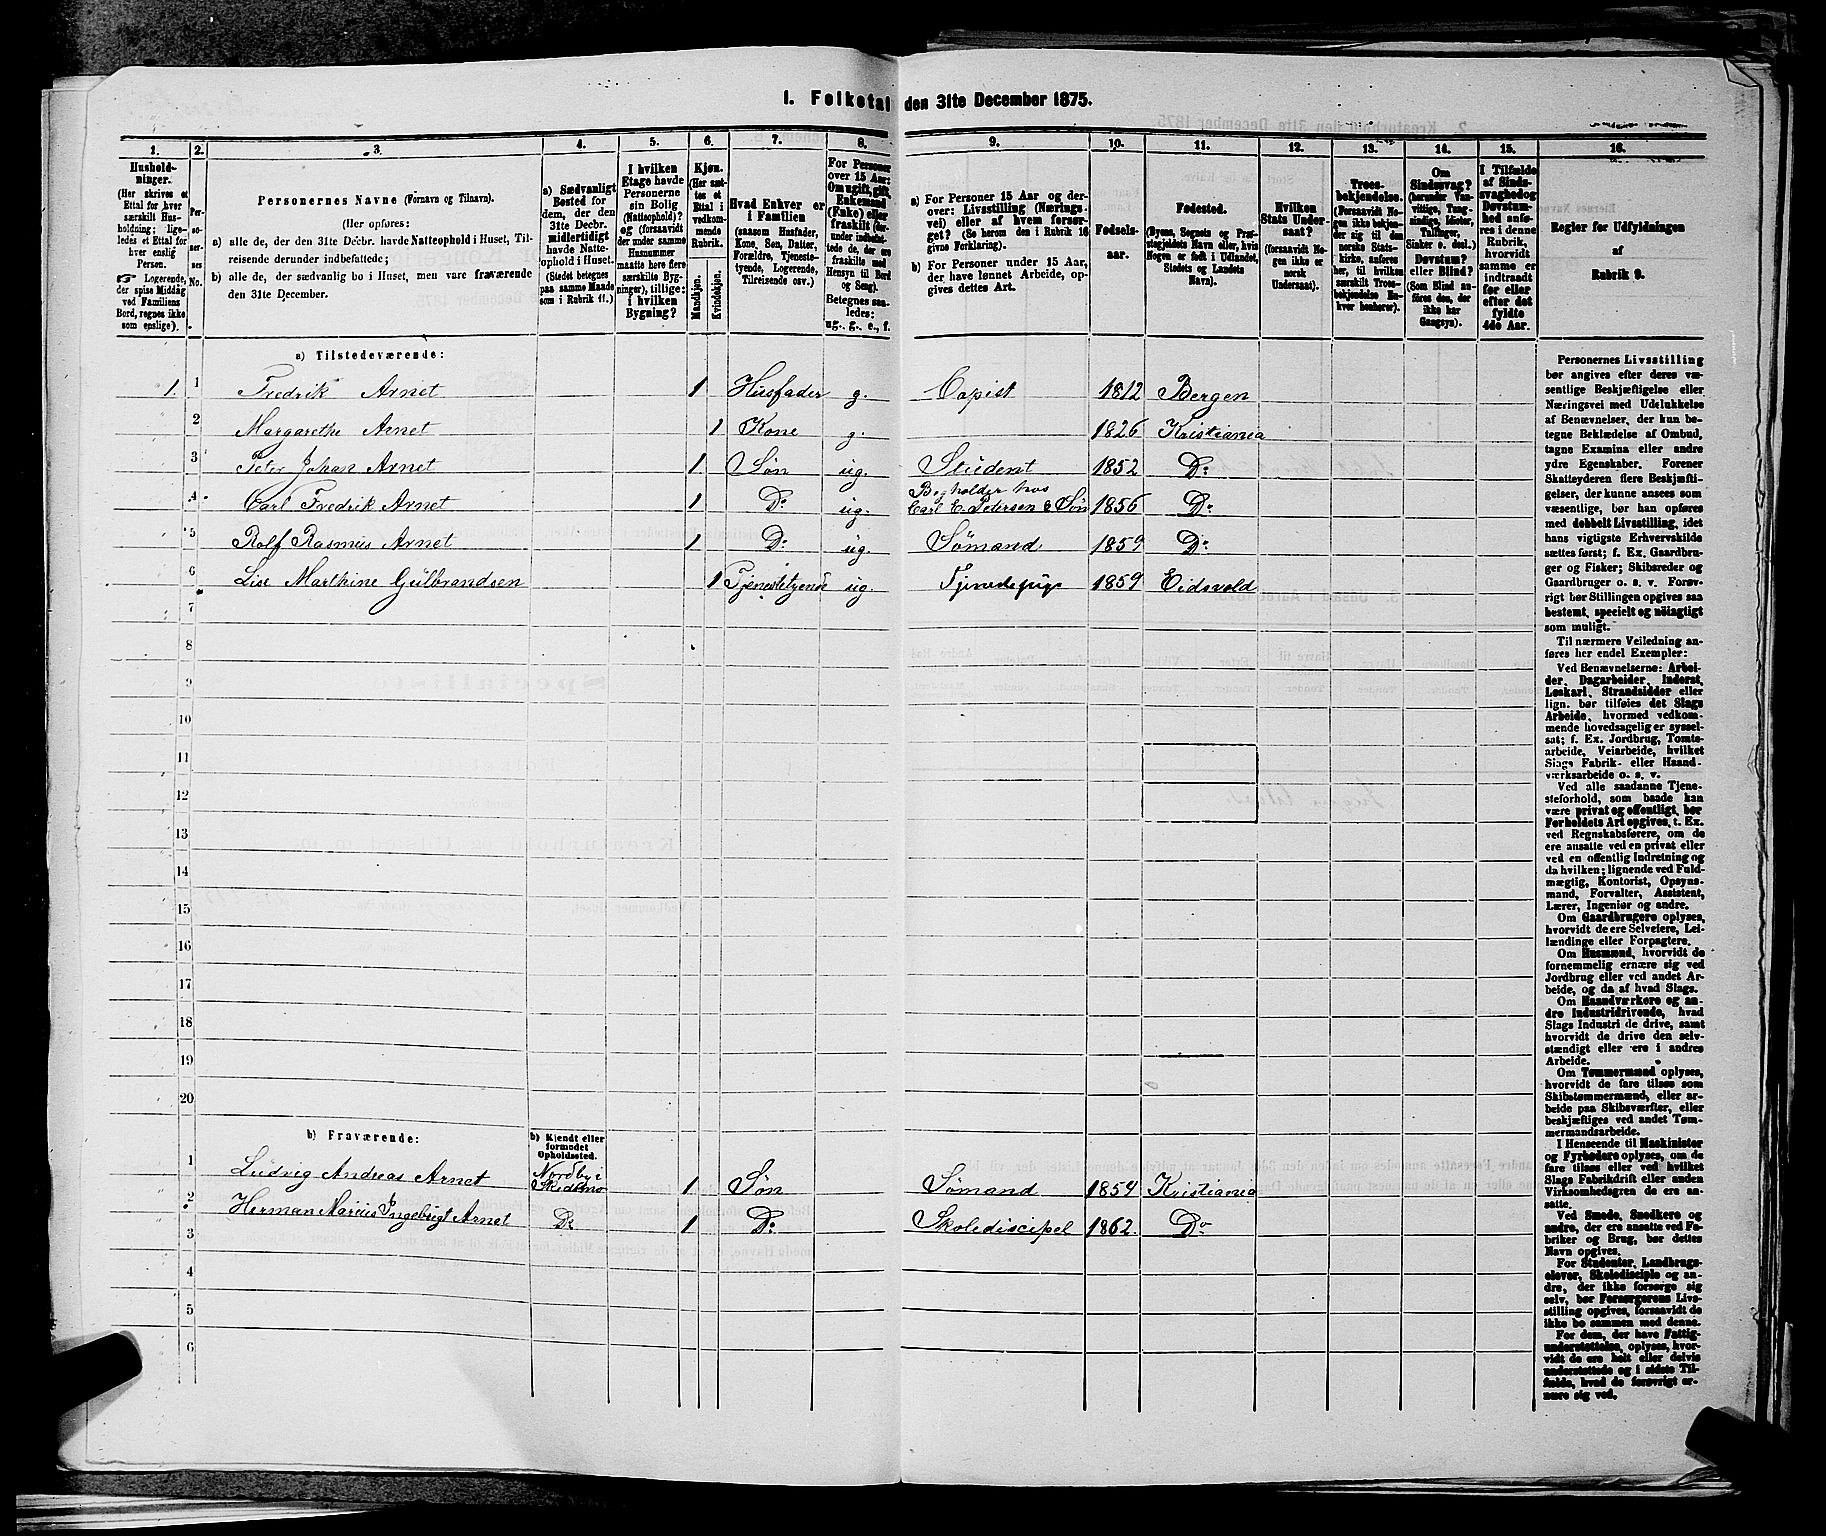 I. Folketal den 31te December 1875.
1. 2. 3. 4. 5. 6. 7. 8. 9. 10. 11. 12. 13. 14. 15. 16.
Husholdninger.
(Her skrives et
Ettal for hver
særskilt Husholdning; ligeledes
et Ettal for
enslig
Person.
Logerende,
der spise Middag
ved Familiens
Bord, regnes ikke
som enslige).
Personernes No.
Personernes Navne (Fornavn og Tilnavn).
(Her opføres:
a) alle de, der den 31te Decbr. havde Natteophold i Huset, Tilreisende derunder indbefattede;
b) alle de, der sædvanlig bo i Huset, men vare fraværende
den 31te December.
a) Sædvanligt
Bosted for
dem, der den
31te Decbr.
midlertidigt
havde Natteophold i Huset.
(Stedet betegnes
paa samme Maade
som i Rubrik 11.)
I hvilken
Etage havde
Personerne
sin Bolig
(Natteophold)?
og (forsaavidt
der under samme
Husnummer
maatte høre flere
særskilte Bygninger), tillige:
i hvilken
Bygning?
Kjøn.
(Her sættes et
Ettal i
vedkommende
Rubrik.
Mandkjøn.
Kvindekjøn.
Hvad Enhver er
i Familien
(saasom Husfader,
Kone, Søn, Datter,
Forældre, Tjenestetyende, Logerende,
Tilreisende osv.)
For Personer
over 15 Aar:
Om ugift, gift,
Enkemand
(Enke) eller
fraskilt
Betegnes saaledes:
ug., g., e., f.
a) For Personer 15 Aar og derover: Livsstilling (Næringsvei) eller af hvem forsørget? (Se herom den i Rubrik 16
givne Forklaring).
b) For Personer under 15 Aar,
der have lønnet Arbeide, opgives dettes Art.
Fødselsaar.
Fødested.
(Byens, Sognets og Præstegjeldets Navn eller, hvis
Nogen er født i Udlandet,
Stedets og Landets
Navn).
Hvilken
Stats Undersaat?
(forsaavidt Nogen ikke er
norsk
Undersaat).
Troesbekjendelse.
(Forsaavidt Nogen ikke bekjender sig til den
norske Statskirke, anføres
her, til hvilken
særskilt Troesbekjendelse Enhver henhører).
Om
Sindssvag?
Døvstum?
eller Blind?
(Som Blind anføres den, der
ikke har
Gangsyn).
I Tilfælde
af Sindssvaghed og
Døvstumhed anføres i denne
Rubrik,
hvorvidt
samme er
indtraadt
før eller
efter det
fyldte
4de Aar.
Regler for Udfyldningen
af
Rubrik 9.
a) Tilstedeværende:
1. 1 Fredrik Arnet 1 Husfader g. Copist 1812 Bergen
2 Margarethe Arnet 1 Kone g. 1826 Kristiania
3 Peter Johan Arnet 1 Søn ug. Student 1852 Do
4 Carl Fredrik Arnet 1 Do ug. Bogholder hos Carl C. Petersen & Søn 1856 Do
5 Rolf Rasmus Arnet 1 Do ug. Sømand 1859 Do
6 Lise Marthine Gulbrandsen 1 Tjenestetyende ug. Tjenestepige 1859 Eidsvold
7
8
9
10
11
12
13
14
15
16
17
18
19
20
b) Fraværende:
b) Kjendt eller
formodet
Opholdssted.
1 Ludvig Andreas Arnet Nordby i 1 Søn Sømand 1854 Kristiania
2 Herman Marius Ingebrigt Arnet Do 1 Do Skolediscipel 1862. Do
3
4
5
6
Personernes Livsstilling
bør angives efter deres væsentlige Beskjæftigelse eller
Næringsvei med Udelukkelse
af Benævnelser, der kun betegne Beklædelse af Ombud,
tagne Examina eller andre
ydre Egenskaber. Forener
Skatteyderen flere Beskjæftigelser, der kunne ansees som
væsentlige, bør han opføres
med dobbelt Livsstilling, idet
hans vigtigste Erhvervskilde
sættes først; f. Ex. Gaardbruger og Fisker; Skibsreder og
Gaardbruger o. s. v. Forøvrigt bør Stillingen opgives saa
bestemt, specielt og nøiagtigt
som muligt.
Til nærmere Veiledning anføres her endel Exempler:
Ved Benævnelserne: Arbeider, Dagarbeider, Inderst,
Løskarl, Strandsidder eller
lign. bør tilføies det Slags
Arbeide, hvormed vedkommende hovedsagelig er sysselsat; f. Ex. Jordbrug, Tomtearbeide, Veiarbeide, hvilket
Slags Fabrik- eller Haandværksarbeide o. s. v.
Ved alle saadanne Tjenesteforhold, som baade kan
være privat og offentligt, bør
Forholdets Art opgives, t. Ex.
ved Regnskabsførere, om de
ere ansatte ved en privat eller
ved en offentlig Indretning og
da hvilken; lignende ved Fuldmægtig, Kontorist, Opsynsmand, Forvalter, Assistent,
Lærer, Ingeniør og andre.
Om Gaardbrugere oplyses,
hvorvidt de ere Selveiere, Leilændinge eller Forpagtere.
Om Husmænd, hvorvidt de
fornemmelig ernære sig ved
Jordbrug eller ved andet Arbeide, og da af hvad Slags.
Om Haandværkere og andre Industridrivende, hvad
Slags Industri de drive, samt
hvorvidt de drive den selvstændigt eller ere i andres
Arbeide.
Om Tømmermænd oplyses,
hvorvidt de fare tilsøs som
Skibstømmermænd, eller arbeide paa Skibsværfter, eller
beskjæftiges ved andet Tømmermandsarbeide.
I Henseende til Maskinister
og Fyrbødere oplyses, om de
fare tilsøs eller ved hvilket
Slags Fabrikdrift eller anden
Virksomhed de ere ansatte.
Ved Smede, Snedkere og
andre, der ere ansatte ved Fabriker og Brug, bør dettes
Navn opgives.
For Studenter, Landbrugselever, Skoledisciple og andre, der ikke forsørge sig
selv, bør Forsørgerens Livsstilling opgives, forsaavidt de
ikke bo sammen med denne.
For dem, der have Fattigunderstøttelse, oplyses, hvorvidt de ere helt eller delvis
understøttede og i sidste Tilfælde, hvad de forøvrigt ernære sig ved.